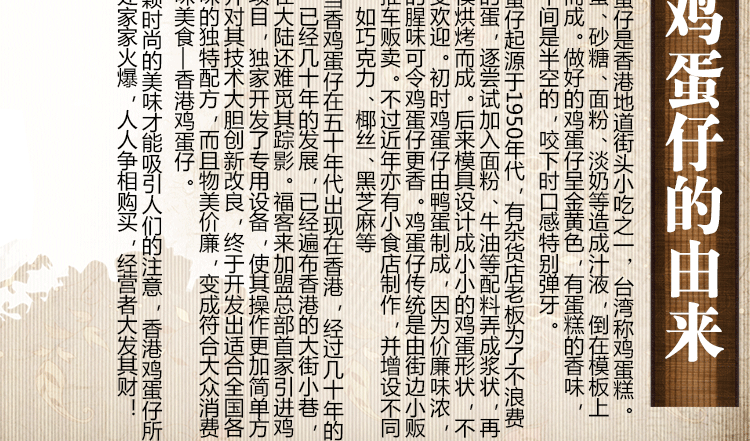 鸡蛋仔的由来
蛋仔是香港地道街头小吃之一，台湾称鸡蛋糕。
蛋、砂糖、面粉、淡奶等造成汁液，倒在模板上
而成。做好的鸡蛋仔呈金黄色，有蛋糕的香味，
中间是半空的，咬下时口感特别弹牙。
蛋仔起源于1950年代，有杂货店老板为了不浪费
的蛋，逐尝试加入面粉、牛油等配料弄成浆状，再
模烘烤而成。后来模具设计成小小的鸡蛋形状，不
受欢迎。初时鸡蛋仔由鸭蛋制成，因为价廉味浓，
的腥味可令鸡蛋仔更香。鸡蛋仔传统是由街边小贩
推车贩卖。不过近年亦有小食店制作，并增设不同
，如巧克力、椰丝、黑芝麻等
当香鸡蛋仔在五十年代出现在香港，经过几十年的
，已经几十年的发展，已经遍布香港的大街小巷，
在大陆还难觅其踪影。福客来加盟总部首家引进鸡
项目，独家开发了专用设备，使其操作更加简单方
并对其技术大胆创新改良，终于开发出适合全国各
味的独特配方，而且物美价廉，变成符合大众消费
味美食—香港鸡蛋仔。
颖时尚的美味才能吸引人们的注意，香港鸡蛋仔所
处家家火爆，人人争相购买，经营者大发其财！